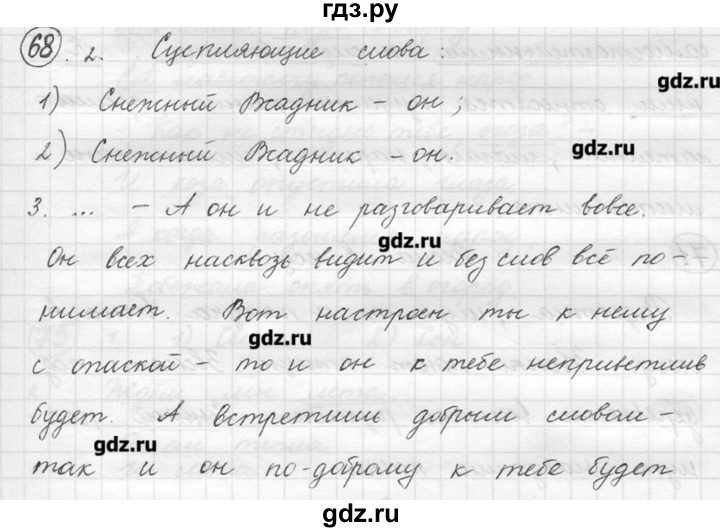 гдз.ру
68. 2. Сцепляющие слова:
gdz.ru
1) Снежный Всадник – он;
2) Снежный Всадник – он.
gdz.ru
3. ... – А он и не разговаривает вовсе.
gdz.ru
Он всех насквозь видит и без слов всё по-
нимает. Вот настроен ты к нему
gdz.ru
с опаской – то и он к тебе неприветлив
будет. А встретишь добрым словом –
gdz.ru
так и он по-доброму к тебе будет